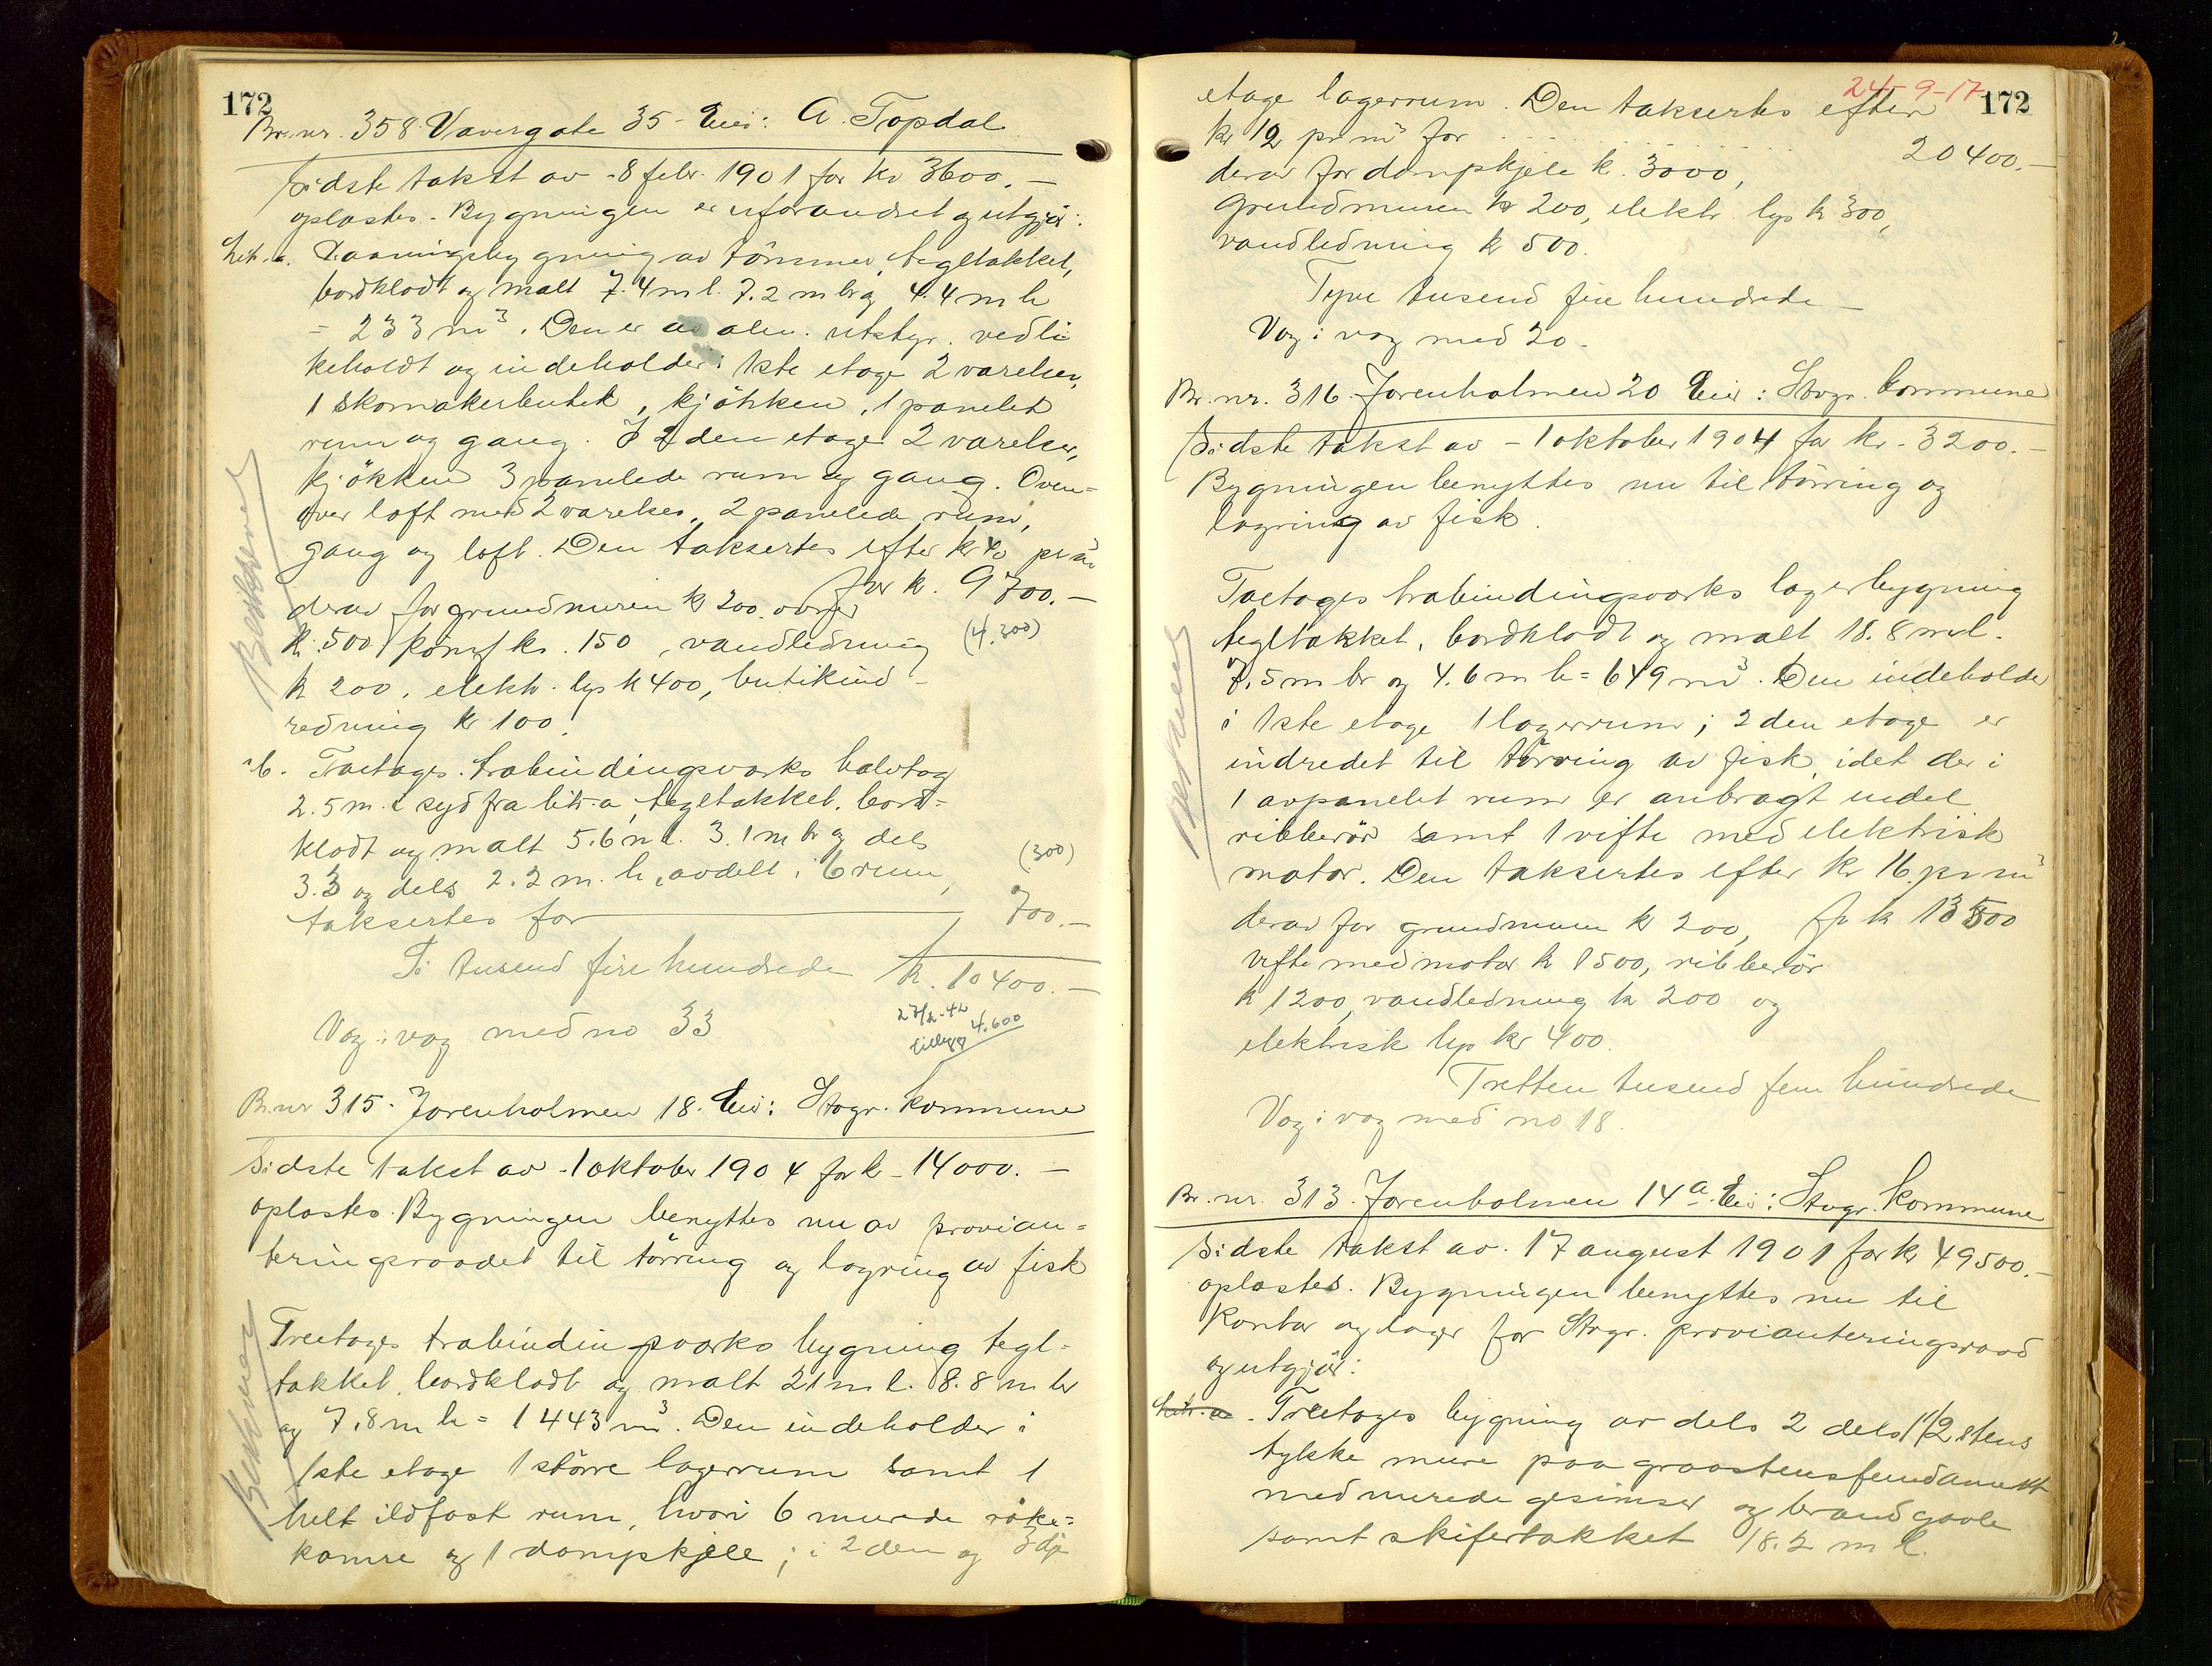 172
Br.nr. 358 Vaversgate 35 - Eier: A. Topdal
Sidste takst av - 8 febr. 1901 for kr 3600.-
oplæstes. Bygningen er uforandret og utgjør:
Litr. a. Vaaningsbygning av tømmer, tegltækket,
bordklædt og malt 7.4 m l. 7.2 m br og 4.4 m h
= 233 m³. Den er av alm. utstyr. vedli
keholdt og indeholder i 1ste etage 2 værelser,
1 skomakerbutik, kjökken, 1 panelet
rum og gang. I 2den etage 2 værelser,
kjökken 3 panelede rum og gang. Oven=
over loft med 2 værelser, 2 panelede rum,
gang og loft. Den taksertes efter kr 40 pr m³
for k. 9700.-
derav for grundmuren k 200, ovner
k. 500, komf kr. 150, vandledning (4.300)
k 200, elektr. lys k 400, butikind-
redning kr 100.
" b. Toetages træbindingsværks halvtag
2.5 m. i syd fra litr. a, tegltækket, bord=
klædt og malt 5.6 m l. 3.1 m br og dels
3.3 og dels 2.2 m. h, avdelt i 6 rum, (300)
taksertes for 700.-
Ti tusend fire hundrede k. 10400.-
Væg i væg med no 33
27/2-42
tillegg 4.600
Br.nr 315. Jorenholmen 18. Eier: Stvgr. kommune
Sidste takst av - 1 oktober 1904 for k - 14000.-
oplæstes. Bygningen benyttes nu av provian=
teringsraadet til tørring og lagring av fisk
Treetages træbindingsværks bygning tegl=
tækket, bordklædt og malt 21 m l. 8.8 m br
og 7.8 m h = 1443 m³. Den indeholder i
1ste etage 1 större lagerrum samt 1
helt ildfast rum, hvori 6 murede röke=
kamre og 1 dampkjele; i 2den og 3dje
24-9-17
172
etage lagerrum. Den taksertes efter
kr 12 pr m³ for 20400.-
derav for dampkjele k. 3000,
grundmuren kr 200, elektr lys k 300,
vandledning k 500.
Tyve tusend fire hundrede -
Væg i væg med 20.
Br.nr. 316 Jorenholmen 20 Eier: Stvgr. kommune
Sidste takst av - 1 oktober 1904 for kr - 3200.-
Bygningen benyttes nu til tørring og
lagring av fisk.
Toetages træbindingsværks lagerbygning
tegltækket, bordklædt og malt 18.8 m l.
7.5 m br og 4.6 m h = 649 m³. Den indeholder
i 1ste etage 1 lagerrum; 2den etage er
indredet til tørring av fisk, idet der i
1 avpanelet rum er anbragt endel
ribberör samt 1 vifte med elektrisk
motor. Den taksertes efter kr 16 pr m³
derav for grundmuren k 200, for k 13500
vifte med motor k 1500, ribberör
k 1200, vandledning k 200 og
elektrisk lys kr 400.
Tretten tusend fem hundrede
Væg i væg med no 18.
Br.nr. 313. Jorenholmen 14a. Eier: Stvgr. Kommune
Sidste takst av. 17 august 1901 for kr 49500.-
oplæstes. Bygningen benyttes nu til
Kontor og lager for Stvgr. provianteringsraad
og utgjør:
Litr. a. Treetages bygning av dels 2 dels 1 1/2 stens
tykke mure paa graastensfundament
med murede gesimser og brandgavle
samt skifertækket 18.2 m l.